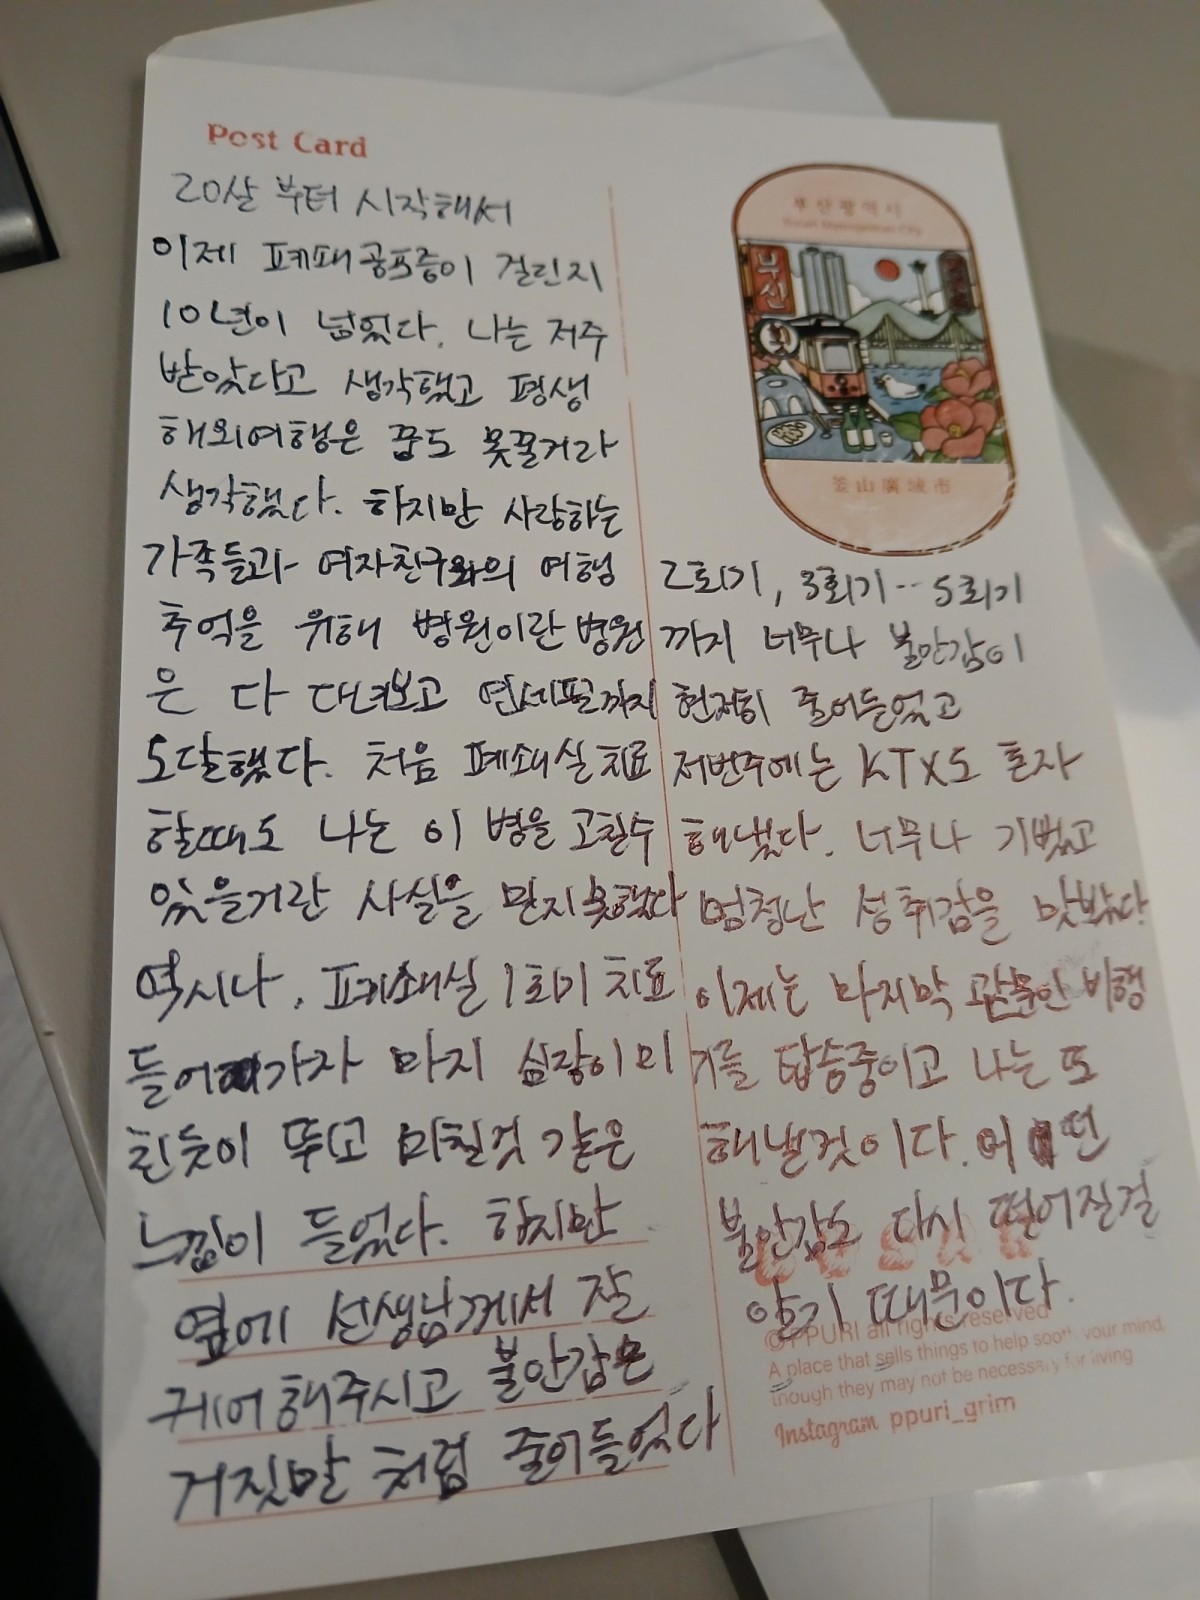 Post Card
20살 부터 시작해서
이제 폐쇄공포증이 걸린지
10년이 넘었다. 나는 저주
받았다고 생각했고 평생
해외여행은 꿈도 못꿀거라
생각했다. 하지만 사랑하는
가족들과 여자친구와의 여행
추억을 위해 병원이란 병원
은 다 다녀보고 연세필까지
도달했다. 처음 폐쇄실 치료
할때도 나는 이 병을 고칠수
있을거란 사실을 믿지못했다
역시나, 폐쇄실 1회기 치료
들어가자 마치 심장이 미
친듯이 뛰고 미칠것 같은
느낌이 들었다. 하지만
옆에 선생님께서 잘
케어해주시고 불안감은
거짓말 처럼 줄어들었다
부산광역시
Busan Metropolitan City
부산
횟
釜山廣域市
2회기, 3회기·· 5회기
까지 너무나 불안감이
현저히 줄어들었고
저번주에는 KTX도 혼자
해냈다. 너무나 기뻤고
엄청난 성취감을 맛봤다
이제는 마지막 관문인 비행
기를 탑승중이고 나는 또
해낼것이다. 어떤
불안감도 다시 떨어질걸
알기 때문이다.
©PPURI all rights reserved
A place that sells things to help sooth your mind,
though they may not be necessary for living
Instagram ppuri_grim